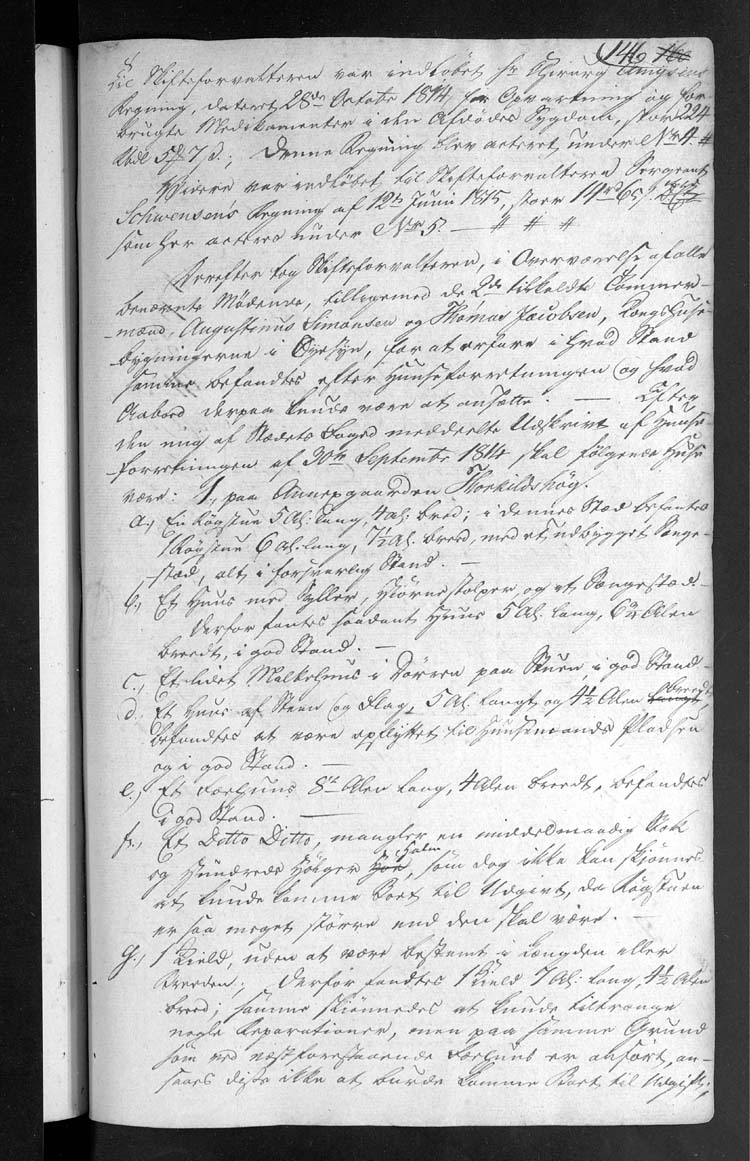 146 160
Til Skifteforvalteren var indløbet Hr Chirurg
Regning, dateret 28de Octobr 1814, for Opvartning og for-
brugte Medikamenter i den Afdødes Sygdom, stor 224
Rbdl 5 # 7 s.; Denne Regning blev acteret under No 4. #
Videre var indløbet til Skifteforvalteren Sergeant
Schwensens Regning af 12te Junii 1815, stoer 14 rd 65 s
som her acteres under No 5. — # # #
Derefter tog Skifteforvalteren, i Overværelse af alle
benævnte Mødende, tilligemed de 2de tilkaldte Tømmer-
-mænd, Augustinus Simonsen og Thomas Jacobsen, Kongshuse-
bygningerne i Øyesyn, for at erfare i hvad Stand
samme befandtes efter Huuseforretningen og hvad
Aabod derpaa kunde være at ansætte. — Efter
den mig af Stædets Foged meddeelte Udskrivt af Huuse-
forretningen af 30te Septembr 1814 skal følgende Huse
være: 1., paa Annexgaarden Thorkildshøy.
a., En Røgstue 5 Al. lang, 4 Al. bred; i dennes Stæd befantes
1 Røgstue 6 Al. lang, 7½ Al. breed, med et udbygget Senge-
-stæd, alt i forsvarlig Stand. —
b., Et Huus med Syller, Hiørnestolper og et Sengestæd.
Derfor fantes saadant Huus 5 Al. lang, 6½ Alen
breedt, i god Stand. —
c., Et lidet Malkehuus i Dørren paa Stuen, i god Stand.
d., Et Huus af Steen og Flag, 5 Al. langt og 4½ Alen breedt,
befandtes at være opflyttet til Huusemands Pladsen
og i god Stand. —
e., Et Faarhuus 8te Alen lang, 4 Alen breedt, befandtes
i god Stand. —
f., Et Ditto Ditto, mangler en middelmaadig Stok
og Hundrede, som dog ikke kan skjønnes
at kunde komme Boet til Udgivt, da Røgstuen
er saa meget større end den skal være. —
g., 1 Kield, uden at være bestemt i Længden eller
Breeden; Derfor fandtes 1 Kield 7 Al. lang, 4½ Alen
breed; samme skiønnedes at kunde tiltrænge
nogle Reparationer, men paa samme Grund
som ved næstforestaaende Faarhuus er anført, an-
saaes disse ikke at burde komme Boet til Udgivt;